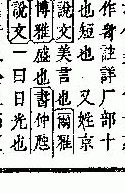 作註詳厂部十
也短也又姓京
說文美言也爾雅
博雅盛也書仲虺
說文一曰日光也